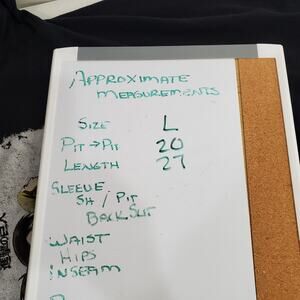 APPROXIMATE
MEASUREMENTS
SIZE L
PIT → PIT 20
LENGTH 27
SLEEVE
SH / PIT
BACK SLIT
WAIST
HIPS
INSEAM